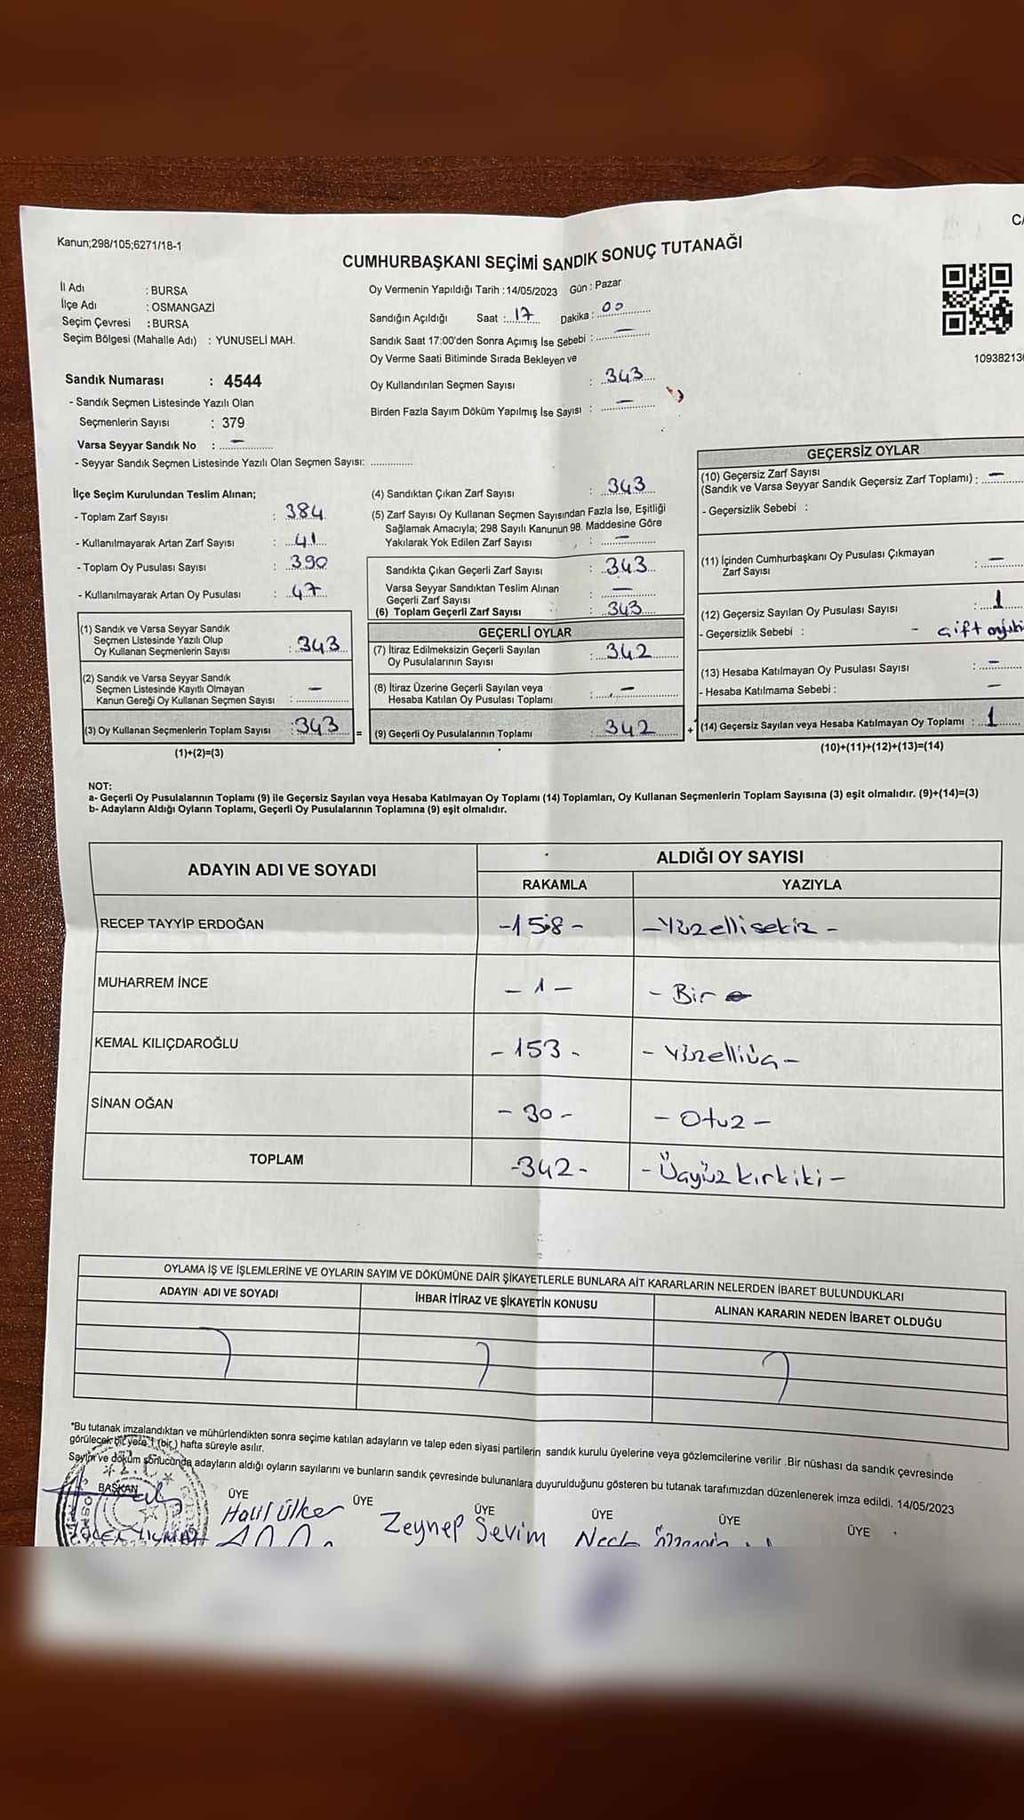 CA
Kanun;298/105;6271/18-1
CUMHURBAŞKANI SEÇİMİ SANDIK SONUÇ TUTANAĞI
İl Adı : BURSA
İlçe Adı : OSMANGAZİ
Seçim Çevresi : BURSA
Seçim Bölgesi (Mahalle Adı) : YUNUSELİ MAH.
Oy Vermenin Yapıldığı Tarih : 14/05/2023 Gün : Pazar
Sandığın Açıldığı Saat : 17 Dakika : 00
Sandık Saat 17:00'den Sonra Açımış İse Sebebi : —
Oy Verme Saati Bitiminde Sırada Bekleyen ve
Oy Kullandırılan Seçmen Sayısı : 343
Birden Fazla Sayım Döküm Yapılmış İse Sayısı : —
10938213
Sandık Numarası : 4544
- Sandık Seçmen Listesinde Yazılı Olan
Seçmenlerin Sayısı : 379
Varsa Seyyar Sandık No : —
- Seyyar Sandık Seçmen Listesinde Yazılı Olan Seçmen Sayısı: ............
İlçe Seçim Kurulundan Teslim Alınan;
- Toplam Zarf Sayısı : 384
- Kullanılmayarak Artan Zarf Sayısı : 41
- Toplam Oy Pusulası Sayısı : 390
- Kullanılmayarak Artan Oy Pusulası : 47
(1) Sandık ve Varsa Seyyar Sandık
Seçmen Listesinde Yazılı Olup
Oy Kullanan Seçmenlerin Sayısı : 343
(2) Sandık ve Varsa Seyyar Sandık
Seçmen Listesinde Kayıtlı Olmayan
Kanun Gereği Oy Kullanan Seçmen Sayısı : —
(3) Oy Kullanan Seçmenlerin Toplam Sayısı : 343 =
(1)+(2)=(3)
(4) Sandıktan Çıkan Zarf Sayısı : 343
(5) Zarf Sayısı Oy Kullanan Seçmen Sayısından Fazla İse, Eşitliği
Sağlamak Amacıyla; 298 Sayılı Kanunun 98. Maddesine Göre
Yakılarak Yok Edilen Zarf Sayısı : —
Sandıkta Çıkan Geçerli Zarf Sayısı : 343
Varsa Seyyar Sandıktan Teslim Alınan
Geçerli Zarf Sayısı : —
(6) Toplam Geçerli Zarf Sayısı : 343
GEÇERLİ OYLAR
(7) İtiraz Edilmeksizin Geçerli Sayılan
Oy Pusulalarının Sayısı : 342
(8) İtiraz Üzerine Geçerli Sayılan veya
Hesaba Katılan Oy Pusulası Toplamı : —
(9) Geçerli Oy Pusulalarının Toplamı : 342 +
GEÇERSİZ OYLAR
(10) Geçersiz Zarf Sayısı
(Sandık ve Varsa Seyyar Sandık Geçersiz Zarf Toplamı) : —
- Geçersizlik Sebebi :
(11) İçinden Cumhurbaşkanı Oy Pusulası Çıkmayan
Zarf Sayısı : —
(12) Geçersiz Sayılan Oy Pusulası Sayısı : 1
- Geçersizlik Sebebi : - çift
(13) Hesaba Katılmayan Oy Pusulası Sayısı : —
- Hesaba Katılmama Sebebi : —
(14) Geçersiz Sayılan veya Hesaba Katılmayan Oy Toplamı : 1
(10)+(11)+(12)+(13)=(14)
NOT:
a- Geçerli Oy Pusulalarının Toplamı (9) ile Geçersiz Sayılan veya Hesaba Katılmayan Oy Toplamı (14) Toplamları, Oy Kullanan Seçmenlerin Toplam Sayısına (3) eşit olmalıdır. (9)+(14)=(3)
b- Adayların Aldığı Oyların Toplamı, Geçerli Oy Pusulalarının Toplamına (9) eşit olmalıdır.
ADAYIN ADI VE SOYADI ALDIĞI OY SAYISI
RAKAMLA YAZIYLA
RECEP TAYYİP ERDOĞAN -158- -Yüzellisekiz-
MUHARREM İNCE -1- -Bir-
KEMAL KILIÇDAROĞLU -153- -Yüzelliüç-
SİNAN OĞAN -30- -Otuz-
TOPLAM -342- -Üçyüzkırkiki-
OYLAMA İŞ VE İŞLEMLERİNE VE OYLARIN SAYIM VE DÖKÜMÜNE DAİR ŞİKAYETLERLE BUNLARA AİT KARARLARIN NELERDEN İBARET BULUNDUKLARI
ADAYIN ADI VE SOYADI İHBAR İTİRAZ VE ŞİKAYETİN KONUSU ALINAN KARARIN NEDEN İBARET OLDUĞU
"Bu tutanak imzalandıktan ve mühürlendikten sonra seçime katılan adayların ve talep eden siyasi partilerin sandık kurulu üyelerine veya gözlemcilerine verilir .Bir nüshası da sandık çevresinde
görülecek bir yere 1 (bir) hafta süreyle asılır.
Sayım ve döküm sonucunda adayların aldığı oyların sayılarını ve bunların sandık çevresinde bulunanlara duyurulduğunu gösteren bu tutanak tarafımızdan düzenlenerek imza edildi. 14/05/2023
BAŞKAN ÜYE ÜYE ÜYE ÜYE ÜYE ÜYE
Halil Ülker Zeynep Sevim